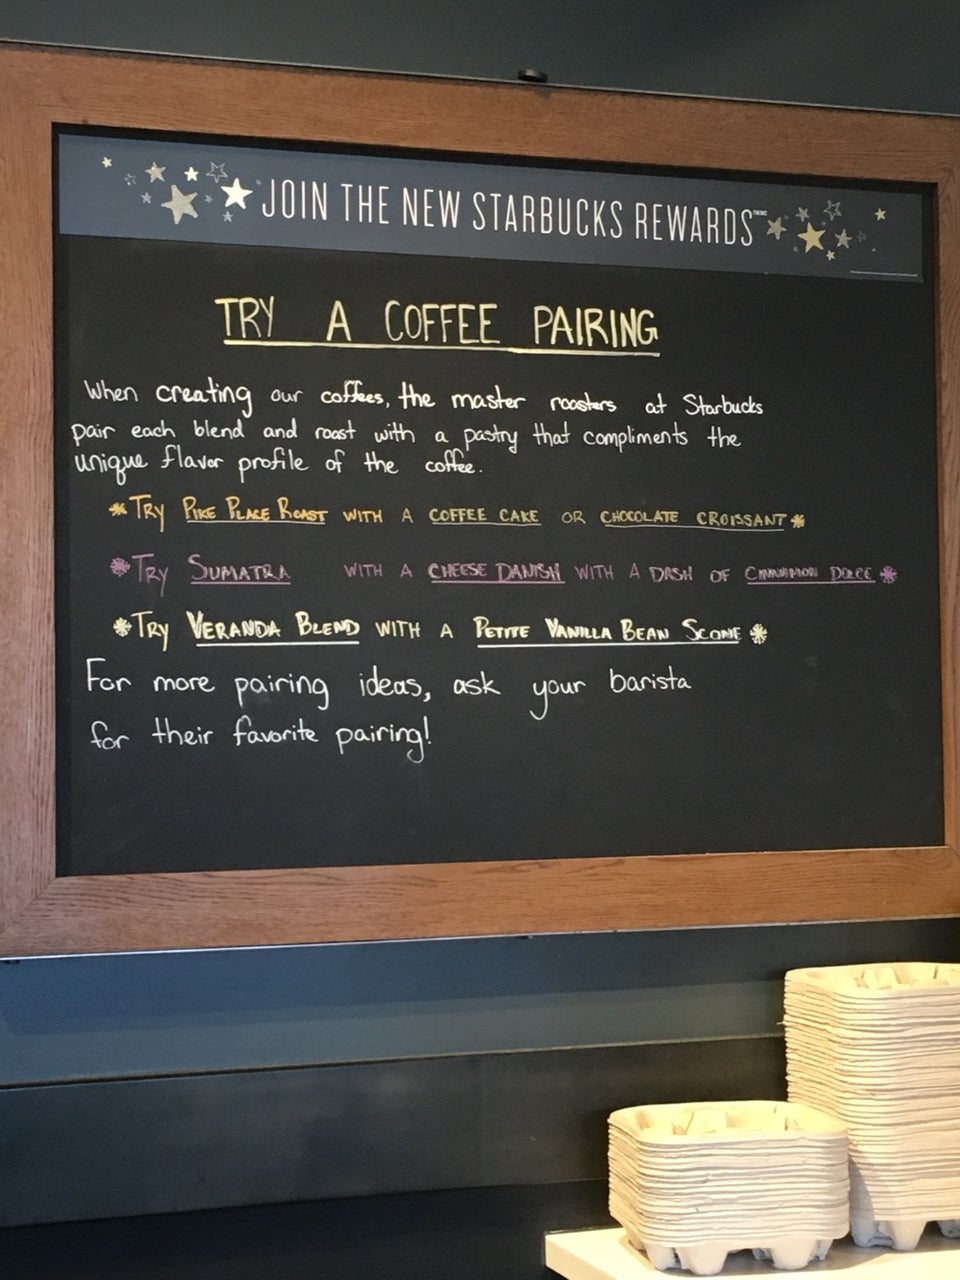 JOIN THE NEW STARBUCKS REWARDS
TRY A COFFEE PAIRING
When creating our coffees, the master roasters at Starbucks
pair each blend and roast with a pastry that compliments the
unique flavor profile of the coffee.
*TRY PIKE PLACE ROAST WITH A COFFEE CAKE OR CHOCOLATE CROISSANT*
*TRY SUMATRA WITH A CHEESE DANISH WITH A DASH OF CINNAMON DOLCE*
*TRY VERANDA BLEND WITH A PETITE VANILLA BEAN SCONE*
For more pairing ideas, ask your barista
for their favorite pairing!